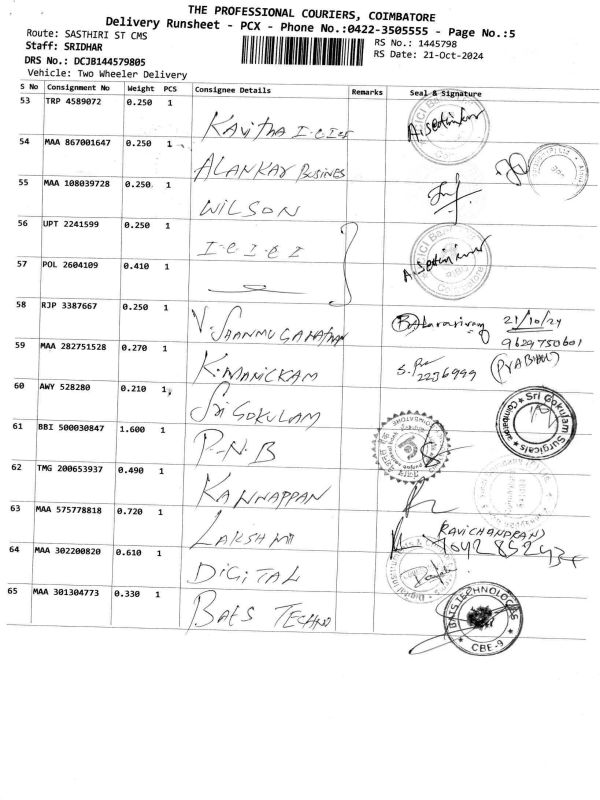 THE PROFESSIONAL COURIERS, COIMBATORE
Delivery Runsheet - PCX - Phone No.:0422-3505555 - Page No.:5
Route: SASTHIRI ST CMS
RS No.: 1445798
Staff: SRIDHAR
RS Date: 21-Oct-2024
DRS No.: DCJB144579805
Vehicle: Two Wheeler Delivery
S No Consignment No Weight PCS Consignee Details Remarks Seal & Signature
53 TRP 4589072 0.250 1
Kavitha I-C-I-CI
54 MAA 867001647 0.250 1
ALANKAR BUSINES
55 MAA 108039728 0.250 1
WILSON
56 UPT 2241599 0.250 1
I-C-I-C-I
57 POL 2604109 0.410 1
58 RJP 3387667 0.250 1
V. SHANMUGANATHAN
21/10/24
9629750601
59 MAA 282751528 0.270 1
K. MANICKAM
(PRABHU)
60 AWY 528280 0.210 1
Sri GOKULAM
Sri Gokulam Surgicals
61 BBI 500030847 1.600 1
P-N-B
62 TMG 200653937 0.490 1
KANNAPPAN
63 MAA 575778818 0.720 1
LAKSHMI
RAVICHANDRAN)
64 MAA 302200820 0.610 1
DIGITAL
65 MAA 301304773 0.330 1
BATS TECHNO
BATS TECHNOLOGIES
CBE-9